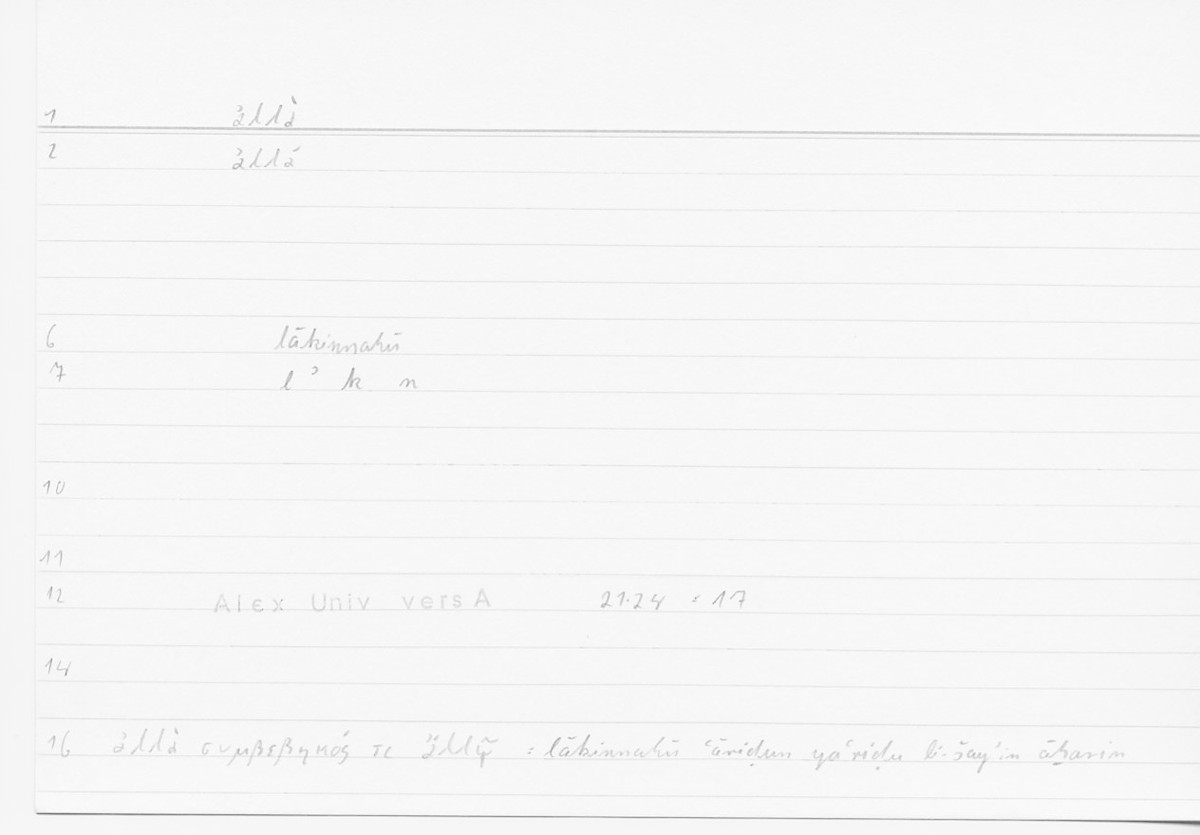 1 ἀλλὰ
2 ἀλλά
6 lākinnahū
7 l ʾ k n
10
11
12 Alex Univ vers A 21.24 = 17
14
16 ἀλλὰ συμβεβηκός τι ἄλλῳ = lākinnahū ʿāriḍun yaʿriḍu li-šayʾin āḫarin